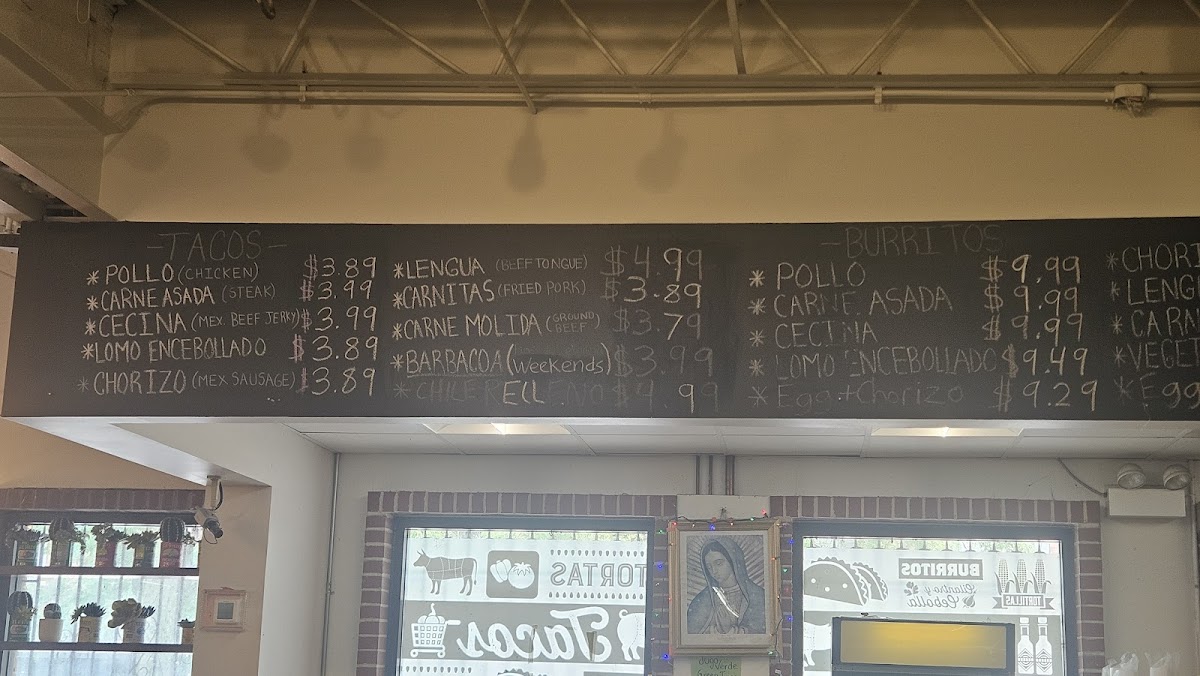 -TACOS-
*POLLO (CHICKEN) $3.89
*CARNE ASADA (STEAK) $3.99
*CECINA (MEX. BEEF JERKY) $3.99
*LOMO ENCEBOLLADO $3.89
*CHORIZO (MEX SAUSAGE) $3.89
*LENGUA (BEEF TONGUE) $4.99
*CARNITAS (FRIED PORK) $3.89
*CARNE MOLIDA (GROUND BEEF) $3.79
*BARBACOA (weekends) $3.99
*CHILE RELLENO $4.99
-BURRITOS-
*POLLO $9.99
*CARNE ASADA $9.99
*CECINA $9.99
*LOMO ENCEBOLLADO $9.49
*Egg + Chorizo $9.29
*CHORI
*LENG
*CARN
*VEGET
*Egg
TORTAS
Tacos
BURRITOS
Cilantro y
Cebolla
TORTILLAS
Jugo
Verde